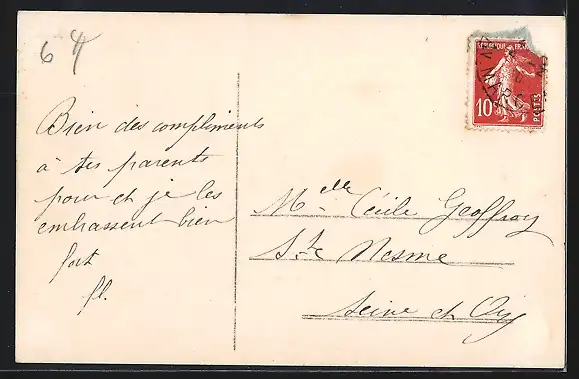 64
Bien des compliments
à tes parents
pour et je les
embrassent bien
fort
fl.
REPUBLIQUE FRANÇAISE
10c
POSTES
Melle Cécile Geoffroy
Ste Mesme
Seine et Oise